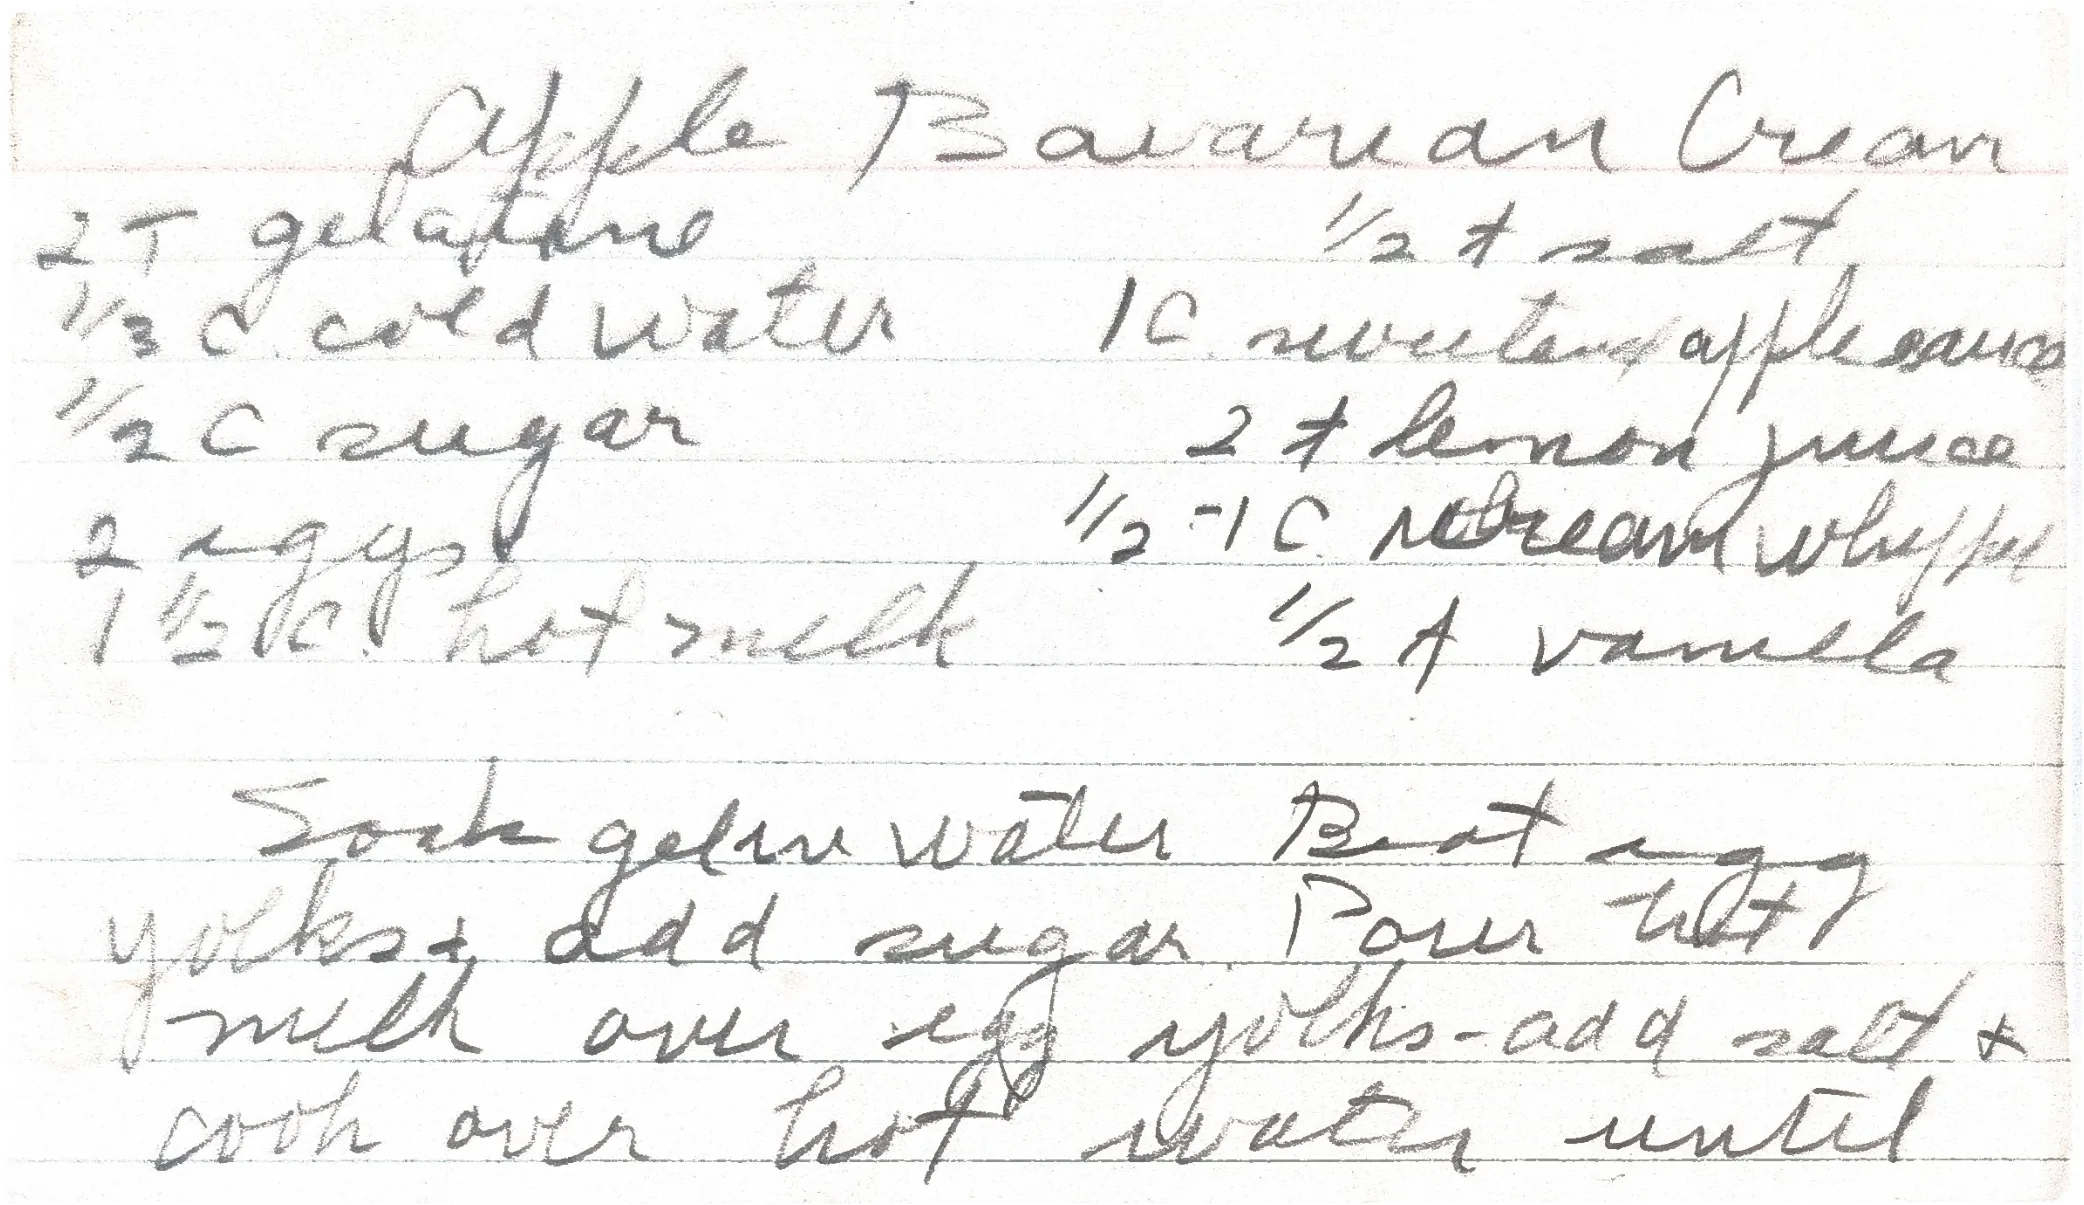 Apple Bavarian Cream
2 T gelatine
1/3 C. cold water
1/2 C sugar
2 eggs
1 1/2 C. hot milk
1/2 t salt
1 C. sweetened applesauce
2 t lemon juice
1/2 - 1 C. cream whipped
1/2 t vanilla
Soak gel in water Beat egg
yolks + add sugar. Pour hot
milk over egg yolks - add salt +
cook over hot water until